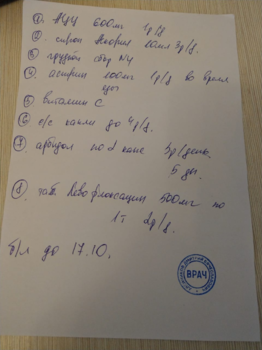 ① АЦЦ 600мг 1р/д
② сироп 3р/д.
③ грудной сбор №4
④ аспирин 100мг 1р/д во время
⑤ витамин С
⑥ капли до 4р/д.
⑦ арбидол по 1 капс 3р/день.
5 дн.
⑧ таб Левофлоксацин 500мг по
1т 2р/д.
б/л до 17.10.
ВРАЧ